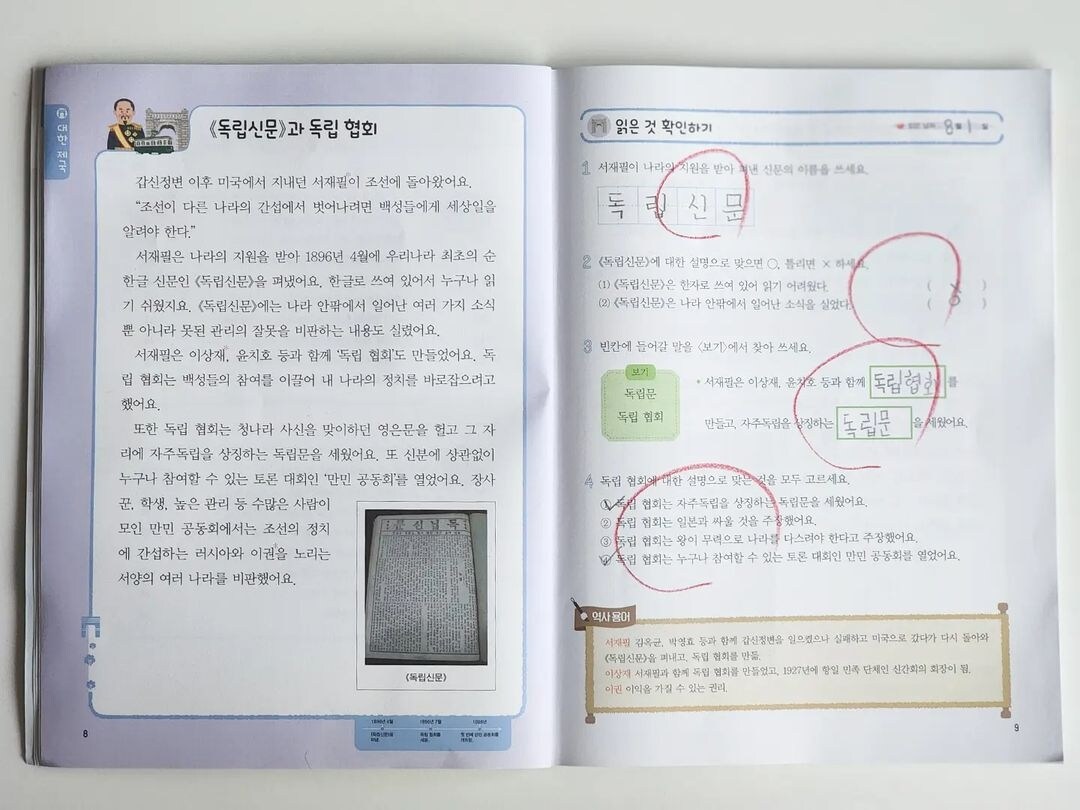 대한 제국
《독립신문》과 독립 협회
갑신정변 이후 미국에서 지내던 서재필이 조선에 돌아왔어요.
“조선이 다른 나라의 간섭에서 벗어나려면 백성들에게 세상일을
알려야 한다.”
서재필은 나라의 지원을 받아 1896년 4월에 우리나라 최초의 순
한글 신문인 《독립신문》을 펴냈어요. 한글로 쓰여 있어서 누구나 읽
기 쉬웠지요. 《독립신문》에는 나라 안팎에서 일어난 여러 가지 소식
뿐 아니라 못된 관리의 잘못을 비판하는 내용도 실렸어요.
서재필은 이상재, 윤치호 등과 함께 ‘독립 협회’도 만들었어요. 독
립 협회는 백성들의 참여를 이끌어 내 나라의 정치를 바로잡으려고
했어요.
또한 독립 협회는 청나라 사신을 맞이하던 영은문을 헐고 그 자
리에 자주독립을 상징하는 독립문을 세웠어요. 또 신분에 상관없이
누구나 참여할 수 있는 토론 대회인 ‘만민 공동회’를 열었어요. 장사
꾼, 학생, 높은 관리 등 수많은 사람이
모인 만민 공동회에서는 조선의 정치
에 간섭하는 러시아와 이권을 노리는
서양의 여러 나라를 비판했어요.
《독립신문》
1896년 4월
《독립신문》을
펴냄.
1896년 7월
독립 협회를
세움.
1898년
첫 번째 만민 공동회를
개최함.
8
읽은 것 확인하기
읽은 날짜 8월 1일
1 서재필이 나라의 지원을 받아 펴낸 신문의 이름을 쓰세요.
독립신문
2 《독립신문》에 대한 설명으로 맞으면 ○, 틀리면 × 하세요.
(1) 《독립신문》은 한자로 쓰여 있어 읽기 어려웠다. ( × )
(2) 《독립신문》은 나라 안팎에서 일어난 소식을 실었다. ( ○ )
3 빈칸에 들어갈 말을 〈보기〉에서 찾아 쓰세요.
보기
독립문
독립 협회
• 서재필은 이상재, 윤치호 등과 함께 독립협회를
만들고, 자주독립을 상징하는 독립문을 세웠어요.
4 독립 협회에 대한 설명으로 맞는 것을 모두 고르세요.
① 독립 협회는 자주독립을 상징하는 독립문을 세웠어요.
② 독립 협회는 일본과 싸울 것을 주장했어요.
③ 독립 협회는 왕이 무력으로 나라를 다스려야 한다고 주장했어요.
④ 독립 협회는 누구나 참여할 수 있는 토론 대회인 만민 공동회를 열었어요.
역사 용어
서재필 김옥균, 박영효 등과 함께 갑신정변을 일으켰으나 실패하고 미국으로 갔다가 다시 돌아와
《독립신문》을 펴내고, 독립 협회를 만듦.
이상재 서재필과 함께 독립 협회를 만들었고, 1927년에 항일 민족 단체인 신간회의 회장이 됨.
이권 이익을 가질 수 있는 권리.
9